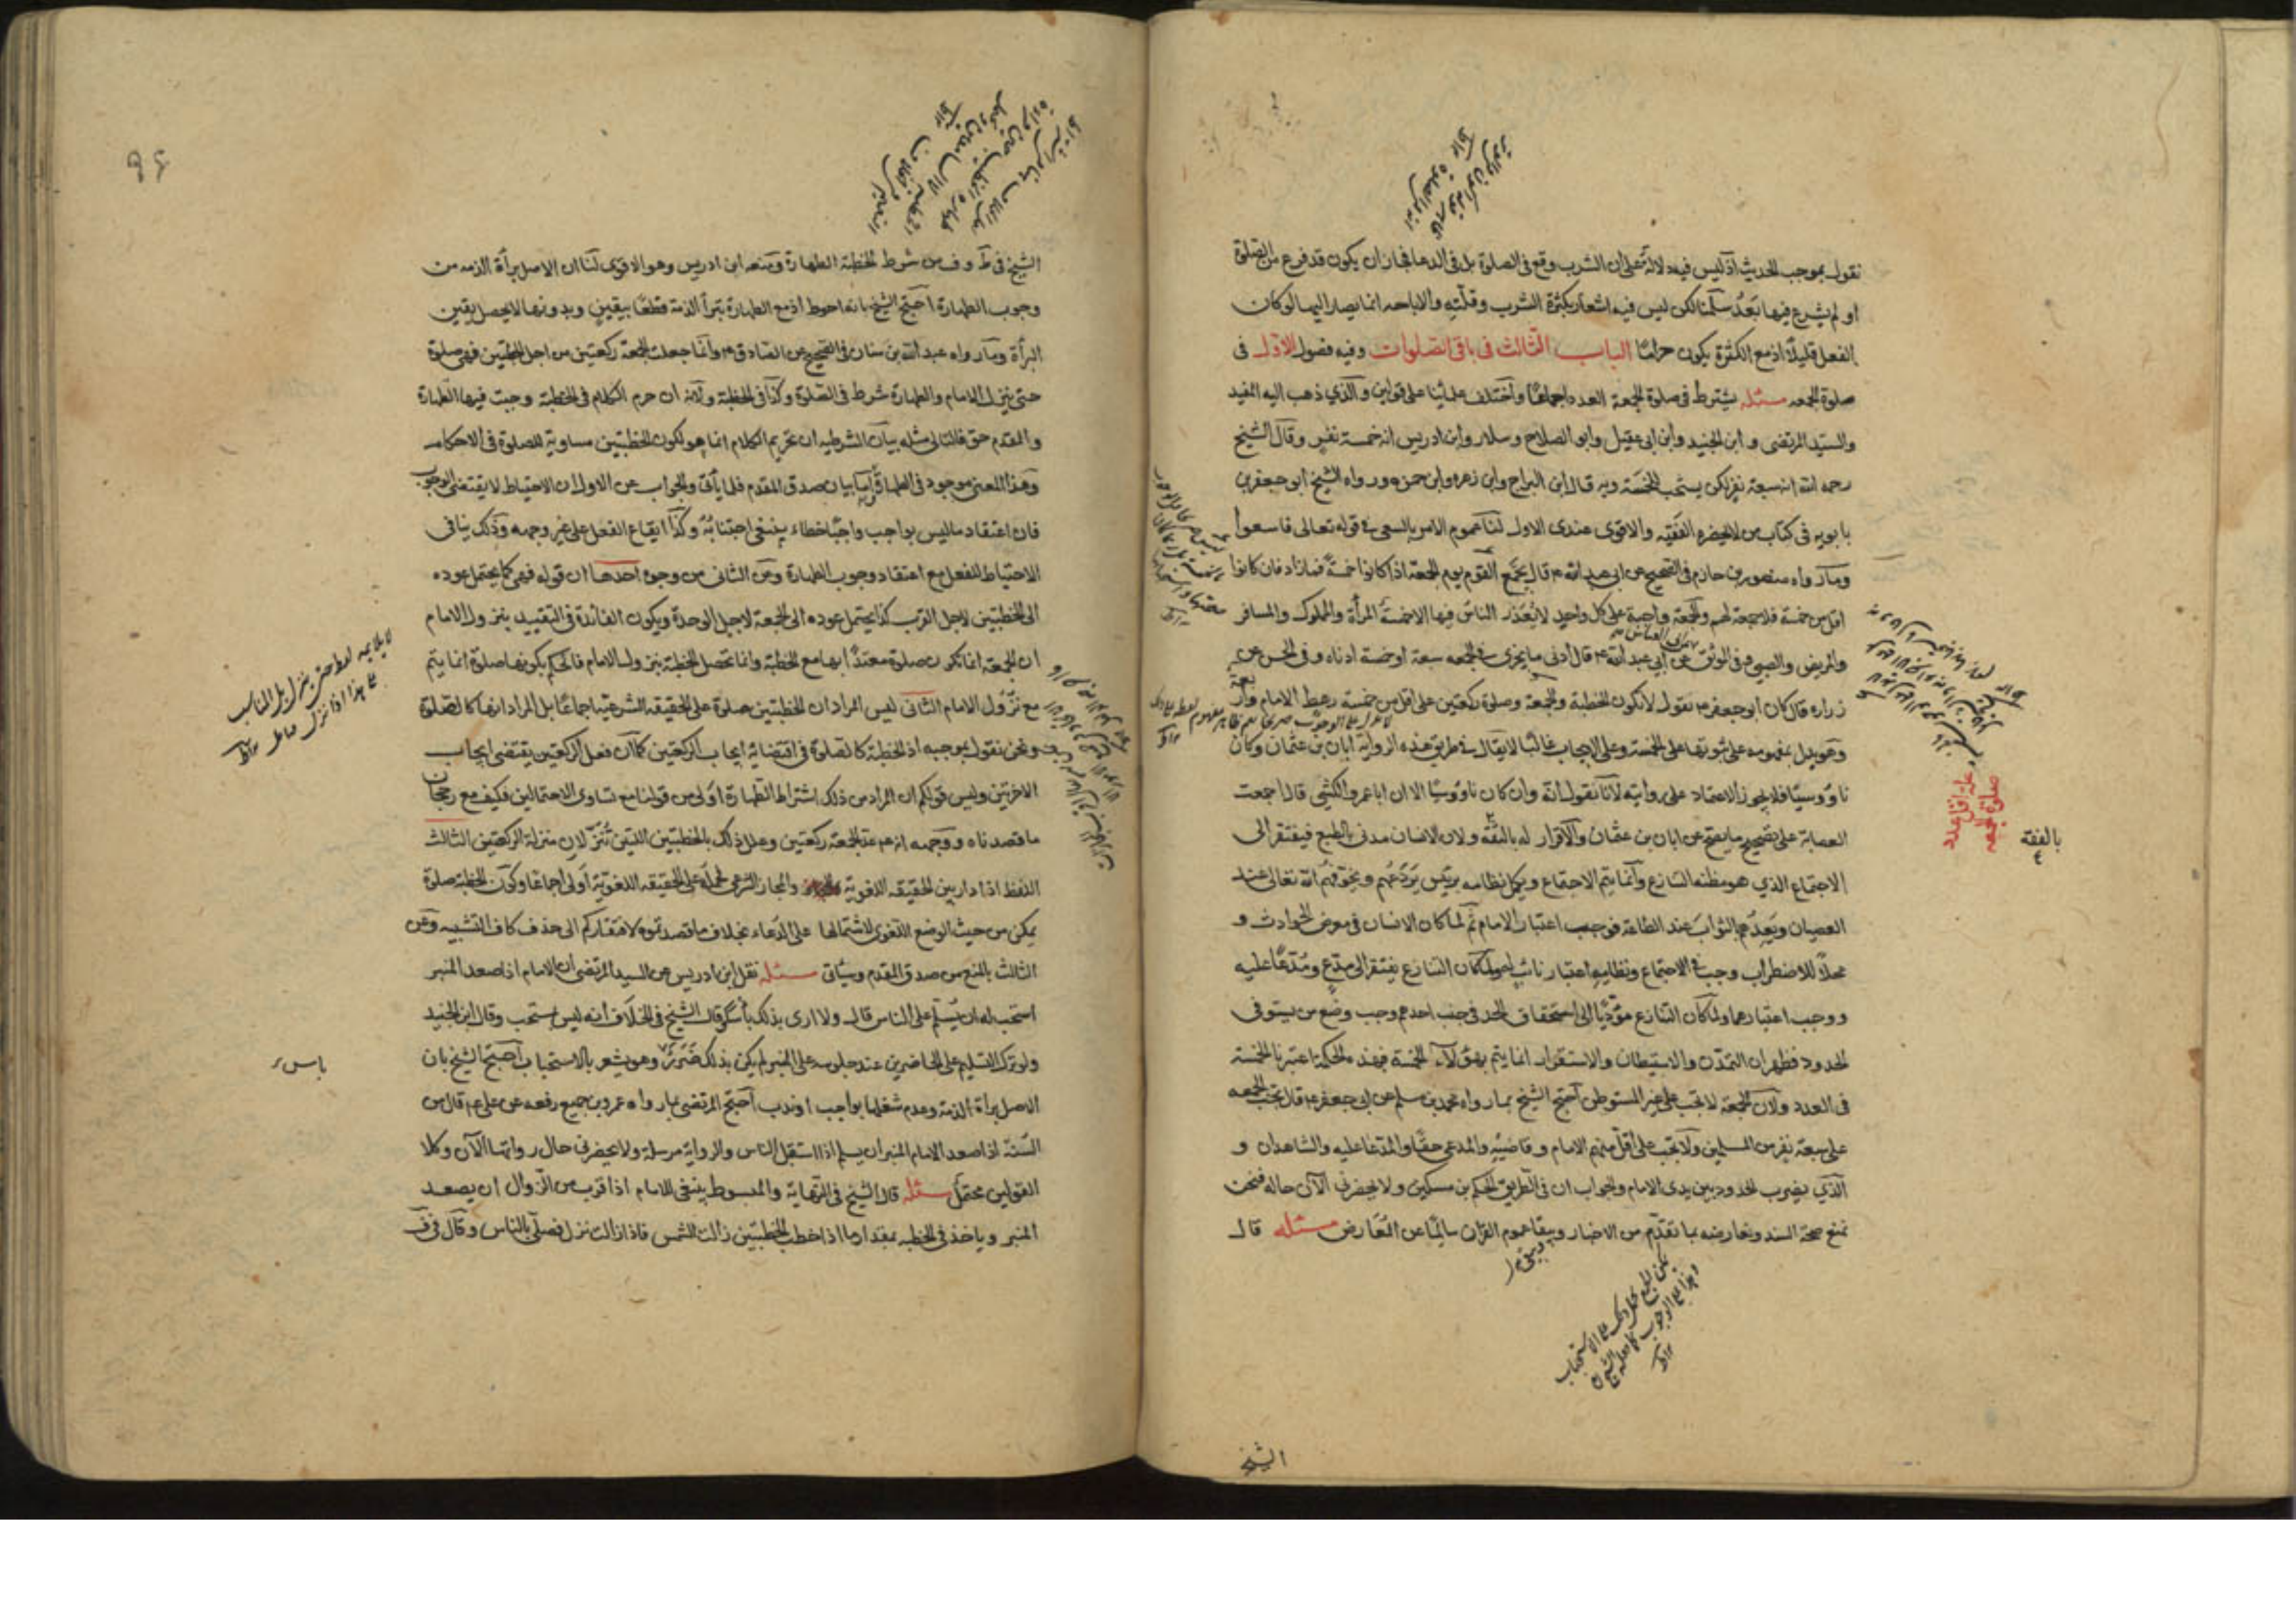 نقول بموجب الحديث اذ ليس فيه دلالة على ان الشرب وقع فى الصلوة بل فى الدعا فجاز ان يكون قد فرغ من الصلوة
او لم يشرع فيها بَعدُ سلّمنا لكن ليس فيه اشعار بكثرة الشرب وقلّته والاباحه انما يصار اليها لو كان
الفعل قليلًا اذ مع الكثرة يكون حرامًا الباب الثالث فى باقى الصلوات وفيه فصول الاوّل فى
صلوة الجمعه مسئله يشترط فى صلوة الجمعة العدد اجماعًا واختلف علمائنا على قولين والذي ذهب اليه المفيد
والسيّد المرتضى و ابن الجنيد وابن ابى عقيل وابو الصلاح وسلار وابن ادريس انه خمسة نفر وقال الشيخ
رحمه الله انه سبعة نفر لكن يستحب للخمسة وبه قال ابن البراج وابن زهره وابن حمزه ورواه الشيخ ابو جعفر بن
بابويه فى كتاب من لا يحضره الفقيه والاقوى عندى الاول لنا عموم الامر بالسعى فى قوله تعالى فاسعوا
وما رواه منصور بن حازم فى الصحيح عن ابى عبد الله ع قال يجمّع القوم يوم الجمعة اذا كانوا خمسة فما زاد فان كانوا
اقل من خمسة فلا جمعة لهم والجمعة واجبة على كل واحد لا يُعذر الناس فيها الا خمسة المرأة والمملوك والمسافر
والمريض والصبى وفى الموثق عن ابي عبد الله ع قال ادنى ما يجزى فى الجمعه سبعة او خمسة ادناه وفى الحسن عن
زراره قال كان ابو جعفر ع يقول لا تكون الخطبة والجمعة وصلوة ركعتين على اقل من خمسة رهط الامام واربعة
وهو يدل بمفهومه على ثبوتها على الخمسة وعلى الايجاب غالبًا لا يقال فى طريق هذه الرواية ابان بن عثمان وكان
ناووسيًا فلا يجوز الاعتماد على روايته لانا نقول انّه وان كان ناووسيًا الا ان ابا عمرو الكشى قال اجمعت
العصابة على تصحيح ما يصح عن ابان بن عثمان والاقرار له بالثقه ولان الانسان مدنى بالطبع فيفتقر الى
الاجتماع الذي هو مظنه التنازع وانّما يتم الاجتماع ويكمل نظامه برئيس يَردَعُهم ويخوّفهم الله تعالى عند
العصيان ويَعِدُهم بالثواب عند الطاعة فوجب اعتبار الامام ثم لما كان الانسان فى معرض الحوادث و
محلًا للاضطراب وجب فى الاجتماع ونظامه اعتبار نائب له ولما كان التنازع يفتقر الى مدّعٍ ومُدّعًا عليه
ووجب اعتبارهما ولما كان التنازع مؤدّيًا الى استحقاق الحد فى جنب احدهم وجب وضع من يستوفى
الحدود فظهر ان التمدّن والاستيطان والاستقرار انما يتم بهؤلآء الخمسة فبهذه الحكمة اعتبرنا الخمسة
فى العدد ولانّ الجمعة لا تجب على غير المستوطن احتج الشيخ بما رواه محمد بن مسلم عن ابى جعفر ع قال تجب الجمعه
على سبعة نفر من المسلمين ولا تجب على اقلّ منهم الامام وقاضيه والمدعى حقًا والمدّعا عليه والشاهدان و
الذي يضرب الحدود بين يدى الامام والجواب ان فى الطريق الحكم بن مسكين ولا يحضرنى الآن حاله فنحن
نمنع صحة السند ونعارضه بما تقدّم من الاخبار ويبقا عموم القران سالمًا عن المُعَارض مسئله قال
الشيخ
صلوة الجمعه
على اقل عدد
بالفقه
96
الشيخ فى ط وف من شرط الخطبة الطهارة ومنعه ابن ادريس وهو الاقوى لنا ان الاصل برأة الذمه من
وجوب الطهارة احتج الشيخ بانه احوط اذ مع الطهارة تبرأ الذمة قطعًا بيقين وبدونها لا يحصل يقين
البرأة وبما رواه عبد الله بن سنان فى الصحيح عن الصادق ع وانما جعلت الجمعة ركعتين من اجل الخطبتين فهى صلوة
حتى ينزل الامام والطهارة شرط فى الصّلوة وكذا فى الخطبة ولانه ان حرم الكلام فى الخطبة وجبت فيها الطهارة
والمقدم حق فالتالى مثله بيان الشرطيه ان تحريم الكلام انما هو لكون الخطبتين مساوية للصلوة فى الاحكام
وهذا المعنى موجود فى الطهارة واما بيان صدق المقدم فلما يأتى والجواب عن الاول ان الاحتياط لا يقتضى الوجوب
فان اعتقاد ما ليس بواجب واجبًا خطاء ينبغى اجتنابُهُ وكذا ايقاع الفعل على غير وجهه وذلك ينافى
الاحتياط للفعل مع اعتقاد وجوب الطهارة وعن الثانى من وجوه احدها ان قوله فهى كما يحتمل عوده
الى الخطبتين لاجل القرب كذا يحتمل عوده الى الجمعة لاجل الوحدة ويكون الفائدة فى التقييد بنزول الامام
ان الجمعة انما تكون صلوة معتدًّا بها مع الخطبة وانما تحصل الخطبة بنزول الامام فالحكم بكونها صلوة انما يتم
مع نزول الامام الثانى ليس المراد ان الخطبتين صلوة على الحقيقه الشرعية اجماعًا بل المراد انها كالصلوة
ونحن نقول بموجبه اذ الخطبة كالصلوة فى اقتضائه ايجاب الركعتين كما ان فعل الركعتين يقتضى ايجاب
الاخرتين وليس قولكم ان المراد من ذلك اشتراط الطهارة اولى من قولنا مع تساوى الاحتمالين فكيف مع رجحان
ما قصدناه ووجهه انه ع عدّ الجمعة ركعتين وعلل ذلك بالخطبتين اللتين تُنزّلان منزلة الركعتين الثالث
اللفظ اذا دار بين الحقيقه اللغوية والمجاز الشرعى حمله على الحقيقه اللغويّة أولى اجماعًا وكون الخطبة صلوة
يمكن من حيث الوضع اللغوى لاشتمالها على الدّعاء بخلاف ما قصدتموه لافتقاركم الى حذف كاف التشبيه وعن
الثالث بالمنع من صدق المقدم وسيأتى مسئله نقل ابن ادريس عن السيد المرتضى ان الامام اذا صعد المنبر
استحب له ان يُسلّم على الناس قال ولا ارى بذلك بأسًا وقال الشيخ فى الخلاف انه ليس بمستحب وقال ابن الجنيد
ولو ترك التسليم على الحاضرين عند جلوسه على المنبر لم يكن بذلك ضَرَرٌ وهو يشعر بالاستحباب احتج الشيخ بان
الاصل براة الذمة وعدم شغلها بواجب او ندب احتج المرتضى بما رواه عمرو بن جميع رفعه عن على ع قال من
السّنة اذا صعد الامام المنبر ان يسلم اذا استقبل الناس والرواية مرسلة ولا يحضرنى حال رواتها الآن وكلا
القولين محتمل مسئله قال الشيخ فى النّهاية والمبسوط ينبغى للامام اذا قرب من الزوال ان يصعد
المنبر وياخذ فى الخطبه بمقدار ما اذا خطب الخطبتين زالت الشمس فاذا زالت نزل فصلّى بالناس وقال فى ف